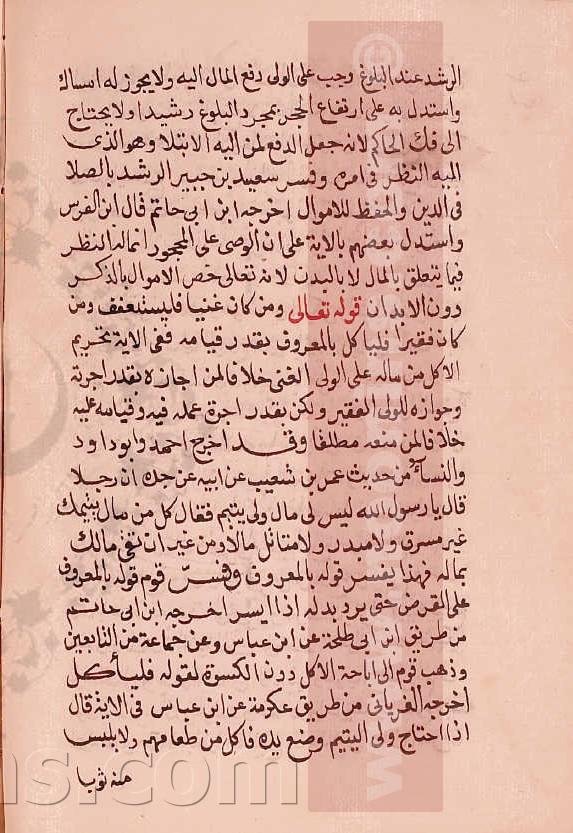 الرشد عند البلوغ وجب على الولى دفع المال اليه ولا يجوز له امساك
واستدل به على ارتفاع الحجر بمجرد البلوغ رشيدا ولا يحتاج
الى فك الحاكم لانه جعل الدفع لمن اليه الابتلا وهو الذى
اليه النظر فى امره وفسر سعيد بن جبير الرشد بالصلا
فى الدين والحفظ للاموال اخرجه ابن ابى حاتم قال ابن الفرس
واستدل بعضهم بالاية على ان الوصى على المحجور انما له النظر
فيما يتعلق بالمال لا بالبدن لانه تعالى خص الاموال بالذكر
دون الابدان قوله تعالى ومن كان غنيا فليستعفف ومن
كان فقيرا فلياكل بالمعروف بقدر قيامه ففى الاية تحريم
الاكل من ماله على الولى الغنى خلافا لمن اجازه بقدر اجرته
وجوازه للولى الفقير ولكن بقدر اجرة عمله فيه وقيامه عليه
خلافا لمن منعه مطلقا وقد اخرج احمد وابو داود
والنسائى من حديث عمر بن شعيب عن ابيه عن جده ان رجلا
قال يا رسول الله ليس لى مال ولى يتيم فقال كل من مال يتيمك
غير مسرف ولا مبدر ولا متاثل مالا ومن غير ان تقى مالك
بماله فهذا يفسر قوله بالمعروف وفسر قوم قوله بالمعروف
على القرض حتى يرد بدله اذا ايسر اخرجه ابن ابى حاتم
من طريق ابن ابى طلحة عن ابن عباس وعن جماعة من التابعين
وذهب قوم الى اباحة الاكل دون الكسوة لقوله فلياكل
اخرجه الفريابى من طريق عكرمة عن ابن عباس فى الاية قال
اذا احتاج ولى اليتيم وضع يده فاكل من طعامهم ولا يلبس
منه ثوبا
ns.com